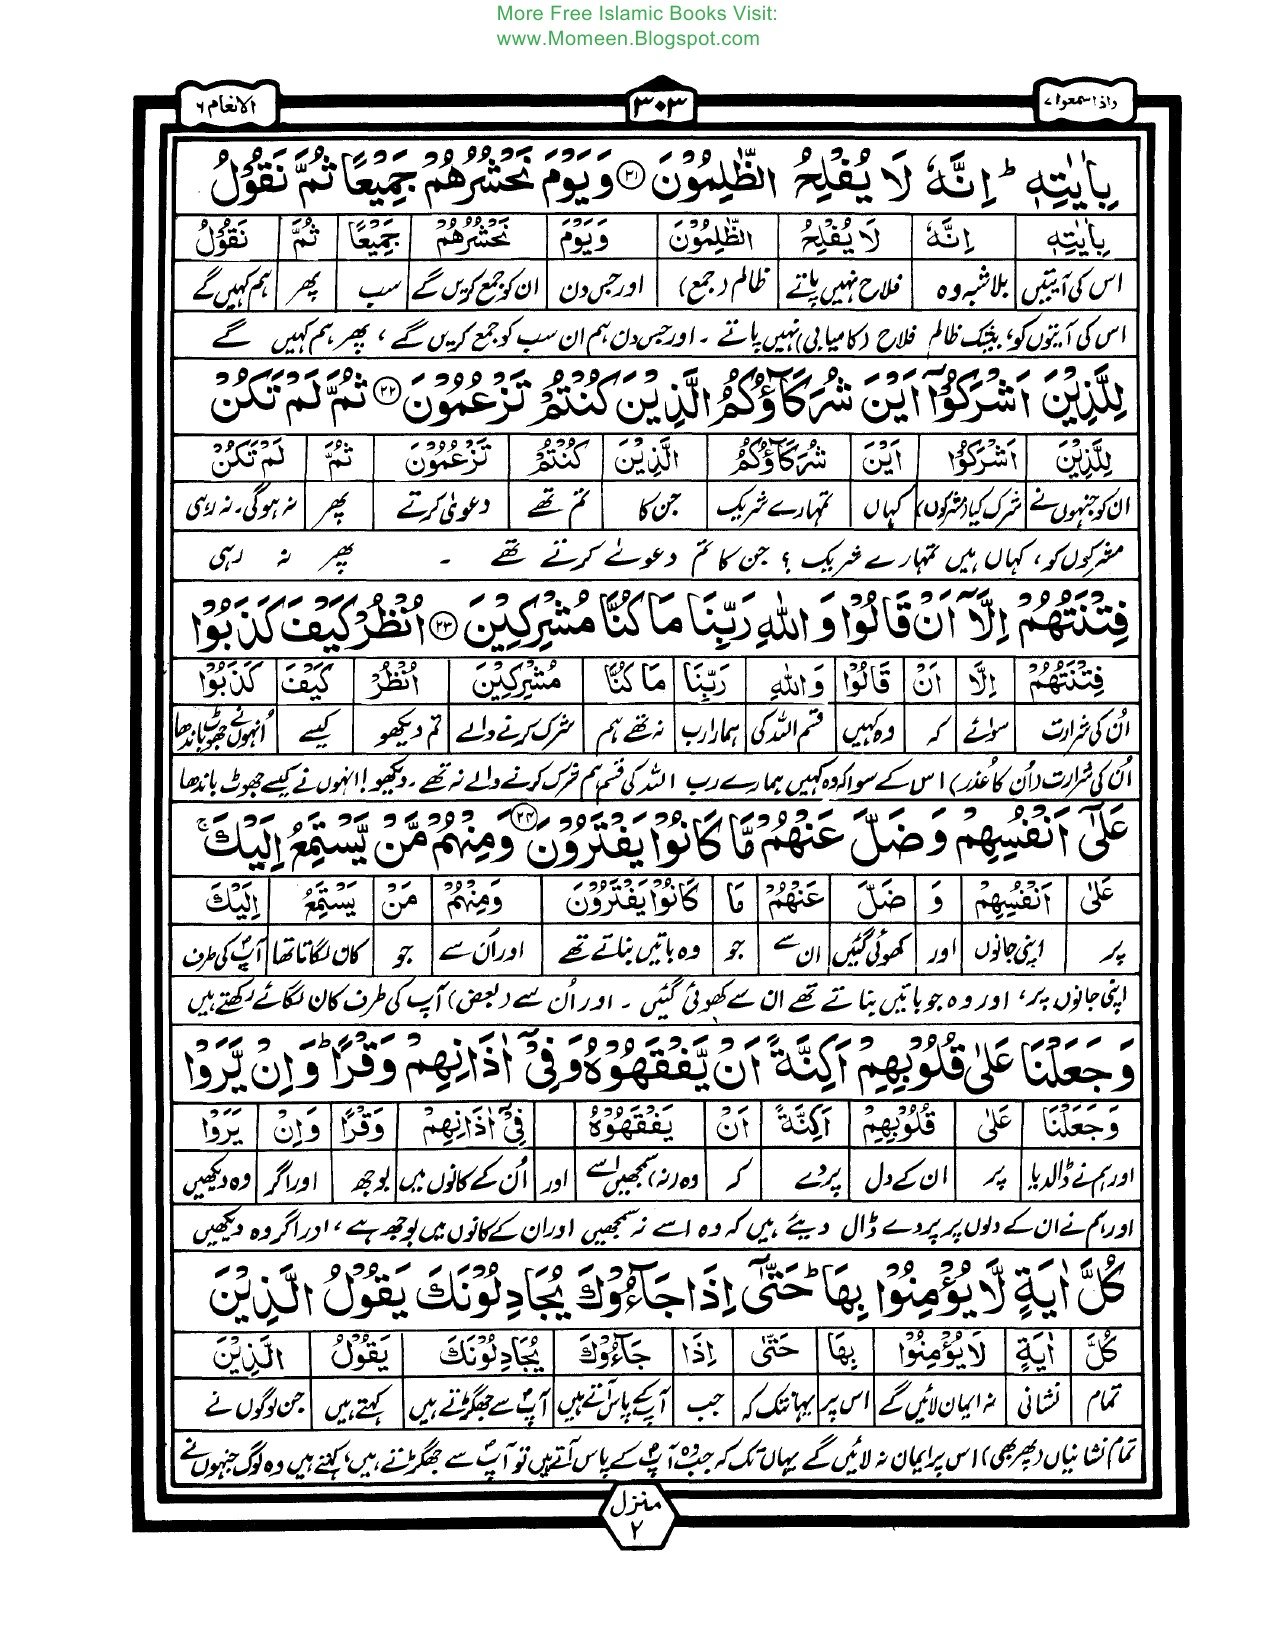 More Free Islamic Books Visit:
www.Momeen.Blogspot.com
واذاسمعوا ۷
۳۰۳
الانعام ۶
بِاٰيٰتِهٖ ؕ اِنَّهٗ لَا يُفْلِحُ الظّٰلِمُوْنَ ﴿۲۱﴾ وَيَوْمَ نَحْشُرُهُمْ جَمِيْعًا ثُمَّ نَقُوْلُ
بِاٰيٰتِهٖ اِنَّهٗ لَا يُفْلِحُ الظّٰلِمُوْنَ وَيَوْمَ نَحْشُرُهُمْ جَمِيْعًا ثُمَّ نَقُوْلُ
اس کی آیتیں بلاشبہ وہ فلاح نہیں پاتے ظالم (جمع) اور جس دن ان کو جمع کریں گے سب پھر ہم کہیں گے
اس کی آیتوں کو، بیشک ظالم فلاح (کامیابی) نہیں پاتے ۔ اور جس دن ہم ان سب کو جمع کریں گے، پھر ہم کہیں گے
لِلَّذِيْنَ اَشْرَكُوْۤا اَيْنَ شُرَكَآؤُكُمُ الَّذِيْنَ كُنْتُمْ تَزْعُمُوْنَ ﴿۲۲﴾ ثُمَّ لَمْ تَكُنْ
لِلَّذِيْنَ اَشْرَكُوْا اَيْنَ شُرَكَآؤُكُمُ الَّذِيْنَ كُنْتُمْ تَزْعُمُوْنَ ثُمَّ لَمْ تَكُنْ
ان کو جنہوں نے شرک کیا (مشرکوں) کہاں تمہارے شریک جن کا تم تھے دعویٰ کرتے پھر نہ ہوگی۔ نہ رہی
مشرکوں کو، کہاں ہیں تمہارے شریک ؟ جن کا تم دعوے کرتے تھے ۔ پھر نہ رہی
فِتْنَتُهُمْ اِلَّاۤ اَنْ قَالُوْا وَاللّٰهِ رَبِّنَا مَا كُنَّا مُشْرِكِيْنَ ﴿۲۳﴾ اُنْظُرْ كَيْفَ كَذَبُوْا
فِتْنَتُهُمْ اِلَّا اَنْ قَالُوْا وَاللّٰهِ رَبِّنَا مَا كُنَّا مُشْرِكِيْنَ اُنْظُرْ كَيْفَ كَذَبُوْا
اُن کی شرارت سوائے کہ وہ کہیں قسم اللہ کی ہمارا رب نہ تھے ہم شرک کرنے والے تم دیکھو کیسے اُنہوں نے جھوٹ باندھا
اُن کی شرارت (اُن کا عذر) اس کے سوا کہ وہ کہیں ہمارے رب اللہ کی قسم ہم شرک کرنے والے نہ تھے ۔ دیکھو! انہوں نے کیسے جھوٹ باندھا
عَلٰۤى اَنْفُسِهِمْ وَضَلَّ عَنْهُمْ مَّا كَانُوْا يَفْتَرُوْنَ ﴿۲۴﴾ وَمِنْهُمْ مَّنْ يَّسْتَمِعُ اِلَيْكَ ۚ
عَلٰى اَنْفُسِهِمْ وَ ضَلَّ عَنْهُمْ مَا كَانُوْا يَفْتَرُوْنَ وَمِنْهُمْ مَنْ يَسْتَمِعُ اِلَيْكَ
پر اپنی جانوں اور کھوئی گئیں ان سے جو وہ باتیں بناتے تھے اور اُن سے جو کان لگاتا تھا آپؐ کی طرف
اپنی جانوں پر، اور وہ جو باتیں بناتے تھے ان سے کھوئی گئیں ۔ اور اُن سے (بعض) آپ کی طرف کان لگائے رکھتے ہیں
وَجَعَلْنَا عَلٰى قُلُوْبِهِمْ اَكِنَّةً اَنْ يَّفْقَهُوْهُ وَفِيْۤ اٰذَانِهِمْ وَقْرًا ؕ وَاِنْ يَّرَوْا
وَجَعَلْنَا عَلٰى قُلُوْبِهِمْ اَكِنَّةً اَنْ يَفْقَهُوْهُ فِيْۤ اٰذَانِهِمْ وَقْرًا وَاِنْ يَرَوْا
اور ہم نے ڈال دیا پر ان کے دل پردے کہ وہ (نہ) سمجھیں اسے اور اُن کے کانوں میں بوجھ اور اگر وہ دیکھیں
اور ہم نے ان کے دلوں پر پردے ڈال دیئے ہیں کہ وہ اسے نہ سمجھیں اور ان کے کانوں میں بوجھ ہے، اور اگر وہ دیکھیں
كُلَّ اٰيَةٍ لَّا يُؤْمِنُوْا بِهَا ؕ حَتّٰۤى اِذَا جَآءُوْكَ يُجَادِلُوْنَكَ يَقُوْلُ الَّذِيْنَ
كُلَّ اٰيَةٍ لَا يُؤْمِنُوْا بِهَا حَتّٰى اِذَا جَآءُوْكَ يُجَادِلُوْنَكَ يَقُوْلُ الَّذِيْنَ
تمام نشانی نہ ایمان لائیں گے اس پر یہانتک کہ جب آپؐ کے پاس آتے ہیں آپؐ سے جھگڑتے ہیں کہتے ہیں جن لوگوں نے
تمام نشانیاں (پھر بھی) اس پر ایمان نہ لائیں گے یہاں تک کہ جب وہ آپؐ کے پاس آتے ہیں تو آپؐ سے جھگڑتے ہیں، کہتے ہیں وہ لوگ جنہوں نے
منزل
۲